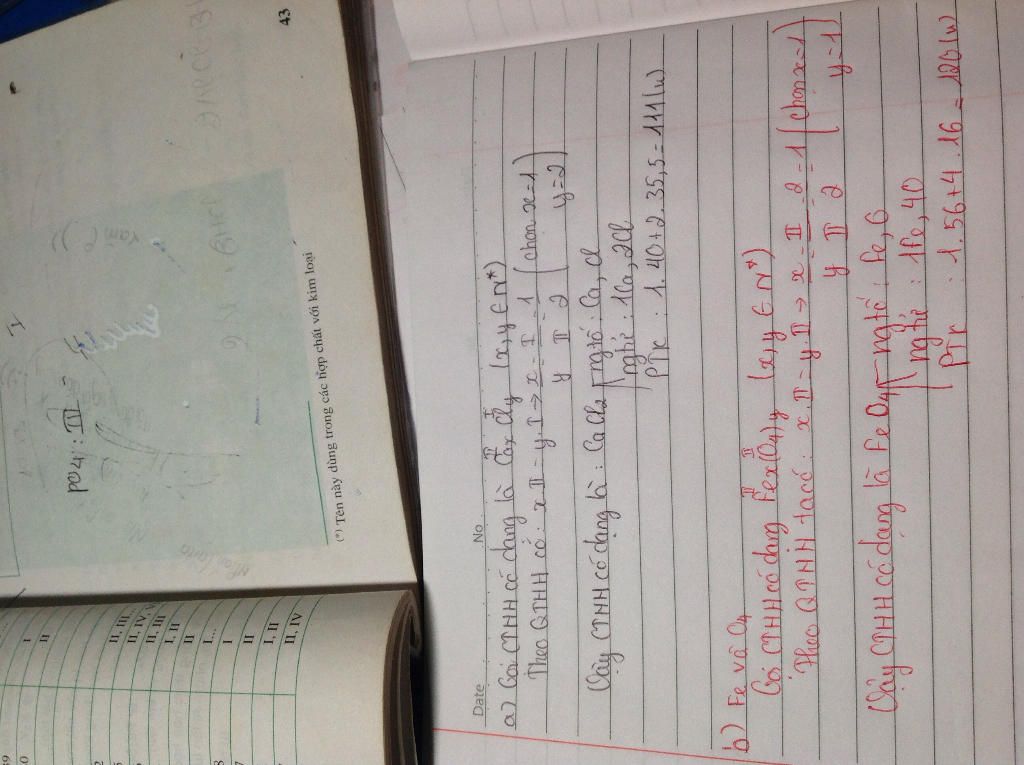 43
PO4: III
(*) Tên này dùng trong các hợp chất với kim loại
I
II
II, III...
II, IV..
II, III, V
I, II
II
I...
I
II
I, II
II, IV
Date No
a) Gọi CTHH có dạng là CaxCly (x,y ∈ N*)
II I
Theo QTHH có: x.II = y.I → x/y = I/II = 1/2 (chọn x=1 y=2)
Vậy CTHH có dạng là: CaCl2 ngtố: Ca, Cl
ngtử: 1Ca, 2Cl
PTK: 1.40+2.35,5=111(u)
b) Fe và O4
Gọi CTHH có dạng Fex(O4)y (x,y ∈ N*)
II II
Theo QTHH ta có: x.II = y.II → x/y = II/II = 2/2 = 1 (chọn x=1 y=1)
Vậy CTHH có dạng là FeO4 ngtố: Fe, O
ngtử: 1Fe, 4O
PTK: 1.56+4.16=120(u)